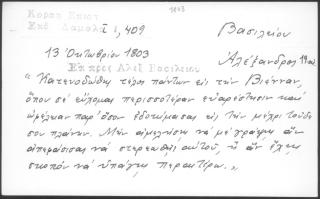 1803
Κοραή Επιστ
Εκδ. Δαμαλᾶ Ι 1, 409
Βασιλείου
Ἀλέξανδρος
13 Ὀκτωβρίου 1803
Ἐπ πρὸς Αλεξ Βασιλειου
"Κατευοδώθης τέλος πάντων εἰς τὴν Βιένναν,
ὅπου σὲ εὔχομαι περισσοτέραν εὐαρέστησιν καὶ
ὠφέλειαν παρ' ὅσον ἐδοκίμασας εἰς τὴν μέχρι τοῦδέ
σου πλάνην. Μὴν ἀμελήσῃς νὰ μὲ γράψῃς ἂν
ἀπεφάσισας νὰ στερεωθῇς αὐτοῦ, ἢ ἂν ἔχῃς
σκοπὸν νὰ ὑπάγῃς περαιτέρω."